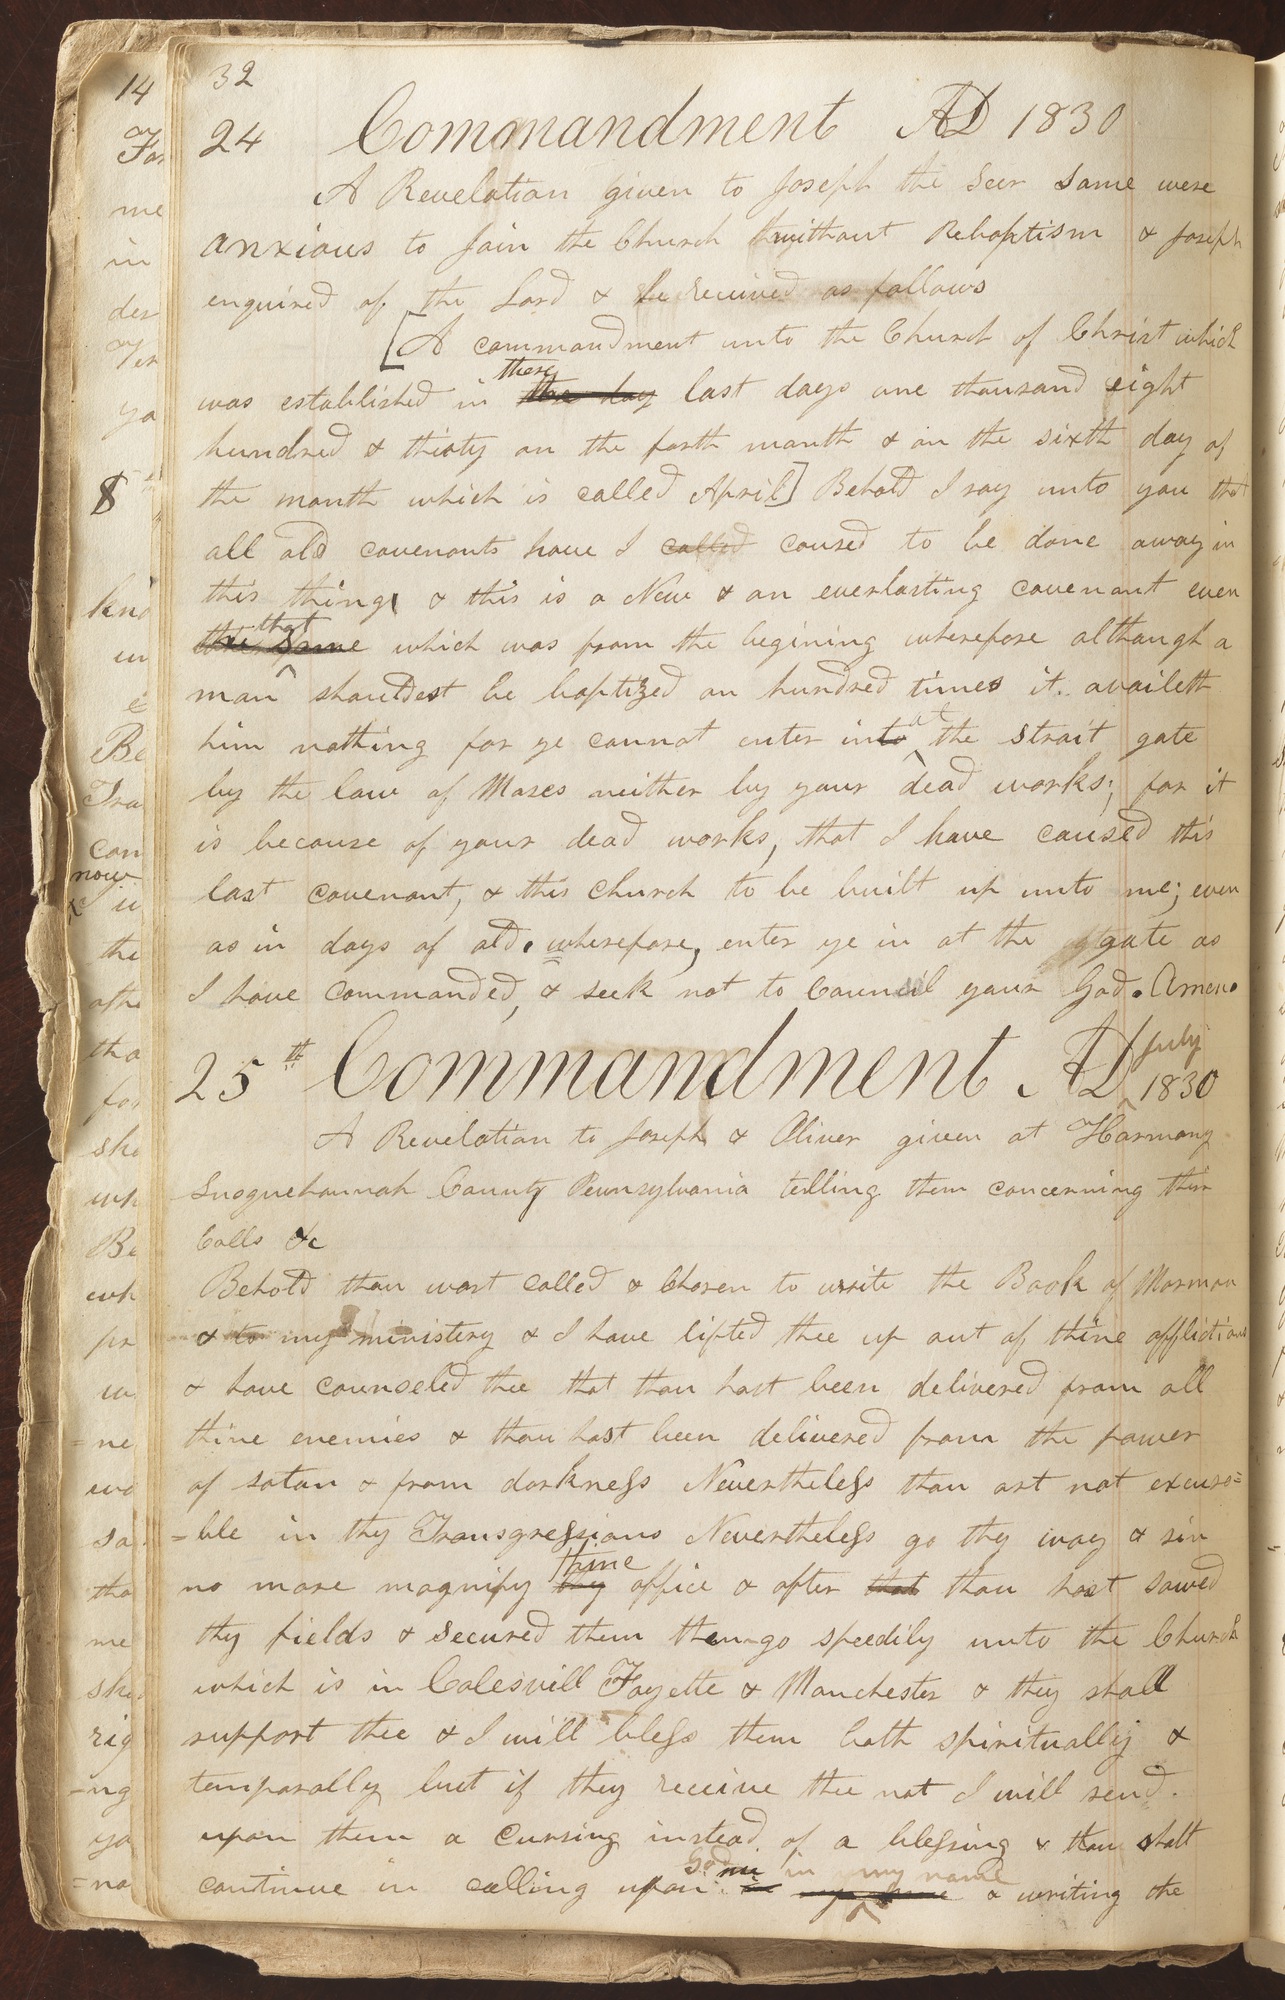 32
24 Commandment AD 1830
A Revelation given to Joseph the Seer Some were
anxious to Join the Church without Rebaptism & Joseph
enquired of the Lord & he received as follows
[A commandment unto the Church of Christ which
these
was established in the day last days one thousand eight
hundred & thirty on the forth month & on the sixth day of
the month which is called April] Behold I say unto you that
all old covenants have I called caused to be done away in
this thing & this is a New & an everlasting covenant even
that
the same which was from the begining wherefore although a
man shouldest be baptized an hundred times it availeth
at
him nothing for ye cannot enter into the strait gate
by the law of Moses neither by your dead works; for it
is because of your dead works, that I have caused this
last covenant, & this church to be built up unto me; even
as in days of old. wherefore, enter ye in at the gate as
I have commanded, & seek not to Council your God. Amen.
July
25th Commandment AD 1830
A Revelation to Joseph & Oliver given at Harmony
Susquehannah County Pennsylvania telling them concerning their
Calls &c
Behold thou wast called & Chosen to write the Book of Mormon
& to my ministery & I have lifted thee up out of thine afflictions
& have counseled thee that thou hast been delivered from all
thine enemies & thou hast been delivered from the power
of satan & from darkness Nevertheless thou art not excusa=
=ble in thy Transgressions Nevertheless go thy way & sin
thine
no more magnify thy office & after that thou hast sowed
thy fields & secured them then go speedily unto the Church
which is in Colesvill Fayette & Manchester & they shall
support thee & I will bless them both spiritually &
temporally but if they receive thee not I will send
upon them a cursing instead of a blessing & thou shalt
God in my name
continue in calling upon & writing the